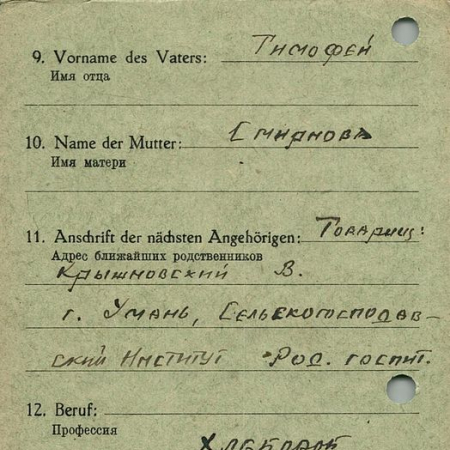 9. Vorname des Vaters: Тимофей
Имя отца
10. Name der Mutter: Смирнова
Имя матери
11. Anschrift der nächsten Angehörigen: Товарищ:
Адрес ближайших родственников
Крышновский В.
г. Умань, Сельскогосподав-
ский Институт Род. госпит.
12. Beruf:
Профессия
Хлебороб